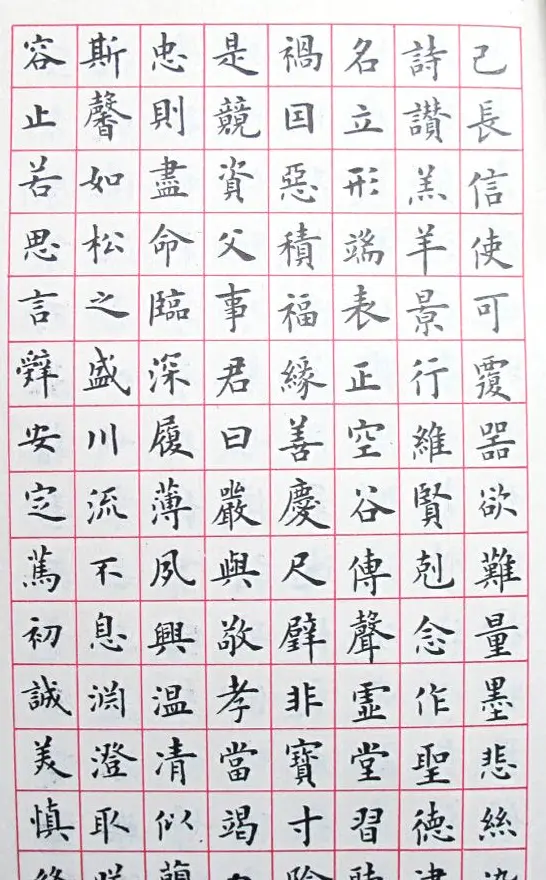 己長信使可覆器欲難量墨悲絲染
詩讃羔羊景行維賢剋念作聖德建
名立形端表正空谷傳聲虛堂習聽
禍因惡積福緣善慶尺璧非寶寸陰
是競資父事君曰嚴與敬孝當竭力
忠則盡命臨深履薄夙興温凊似蘭
斯馨如松之盛川流不息渊澄取暎
容止若思言辭安定篤初誠美慎終